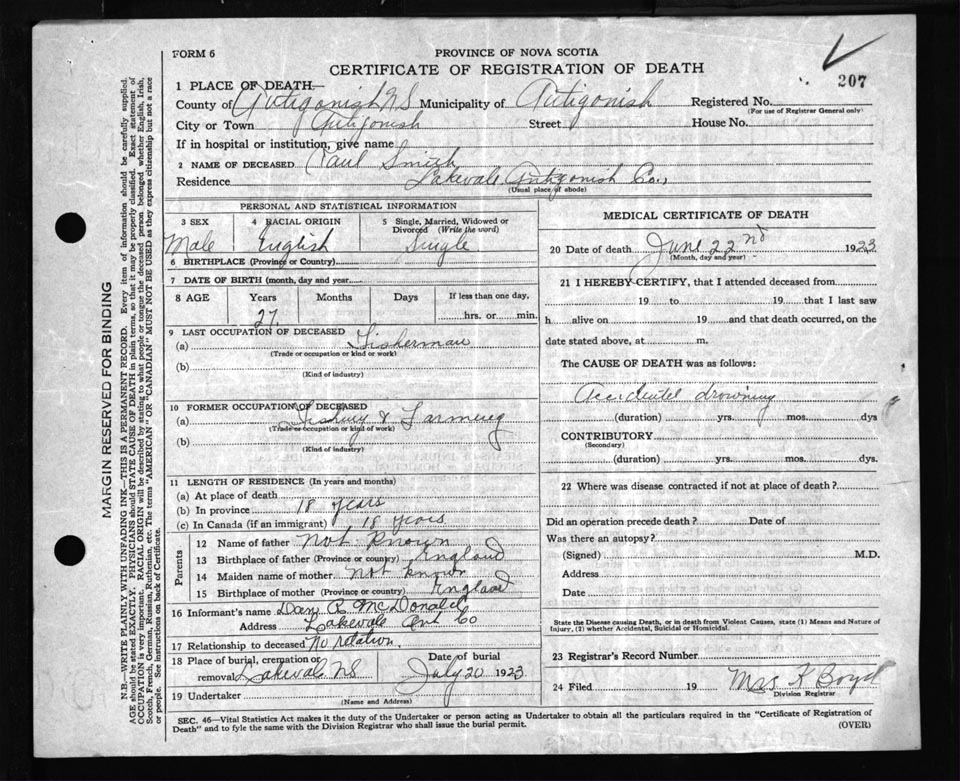 FORM 6
PROVINCE OF NOVA SCOTIA
CERTIFICATE OF REGISTRATION OF DEATH
207
1 PLACE OF DEATH—
County of Antigonish N S Municipality of Antigonish Registered No.
(For use of Registrar General only)
City or Town Antigonish Street House No.
If in hospital or institution, give name
2 NAME OF DECEASED Paul Smith
Residence Lakevale Antigonish Co.,
(Usual place of abode)
PERSONAL AND STATISTICAL INFORMATION
3 SEX 4 RACIAL ORIGIN 5 Single, Married, Widowed or Divorced (Write the word)
Male English Single
6 BIRTHPLACE (Province or Country)
7 DATE OF BIRTH (month, day and year)
8 AGE Years Months Days If less than one day,
27 hrs. or min.
9 LAST OCCUPATION OF DECEASED
(a) Fisherman
(Trade or occupation or kind or work)
(b)
(Kind of industry)
10 FORMER OCCUPATION OF DECEASED
(a) Fishing & Farming
(Trade or occupation or kind of work)
(b)
(Kind of industry)
11 LENGTH OF RESIDENCE (In years and months)
(a) At place of death
(b) In province 18 years
(c) In Canada (if an immigrant) 18 years
Parents
12 Name of father not known
13 Birthplace of father (Province or country) England
14 Maiden name of mother not known
15 Birthplace of mother (Province or country) England
16 Informant's name Dan R McDonald
Address Lakevale Ant Co
17 Relationship to deceased No relation.
18 Place of burial, cremation or removal Lakevale NS Date of burial July 20 1923
19 Undertaker
(Name and Address)
MEDICAL CERTIFICATE OF DEATH
20 Date of death June 22nd 1923
(Month, day and year)
21 I HEREBY CERTIFY, that I attended deceased from
19 to 19 that I last saw
h alive on 19 and that death occurred, on the
date stated above, at m.
The CAUSE OF DEATH was as follows:
Accidental drowning
(duration) yrs. mos. dys
CONTRIBUTORY
(Secondary)
(duration) yrs. mos. dys.
22 Where was disease contracted if not at place of death?
Did an operation precede death? Date of
Was there an autopsy?
(Signed) M.D.
Address
Date
State the Disease causing Death, or in death from Violent Causes, state (1) Means and Nature of
Injury, (2) whether Accidental, Suicidal or Homicidal.
23 Registrar's Record Number
24 Filed 19 Mrs K Boyd
Division Registrar
SEC. 46—Vital Statistics Act makes it the duty of the Undertaker or person acting as Undertaker to obtain all the particulars required in the "Certificate of Registration of
Death" and to fyle the same with the Division Registrar who shall issue the burial permit.
(OVER)
MARGIN RESERVED FOR BINDING
N.B.—WRITE PLAINLY WITH UNFADING INK—THIS IS A PERMANENT RECORD. Every item of information should be carefully supplied.
AGE should be stated EXACTLY. PHYSICIANS should STATE CAUSE OF DEATH in plain terms, so that it may be properly classified. Exact statement of
OCCUPATION is very important. RACIAL ORIGIN will be described by stating to what people or tongue the deceased person belonged, whether English, Irish,
Scotch, French, German, Russian, Ruthenian, etc. The terms "AMERICAN" OR "CANADIAN" MUST NOT BE USED as they express citizenship but not a race
or people. See instructions on back of Certificate.